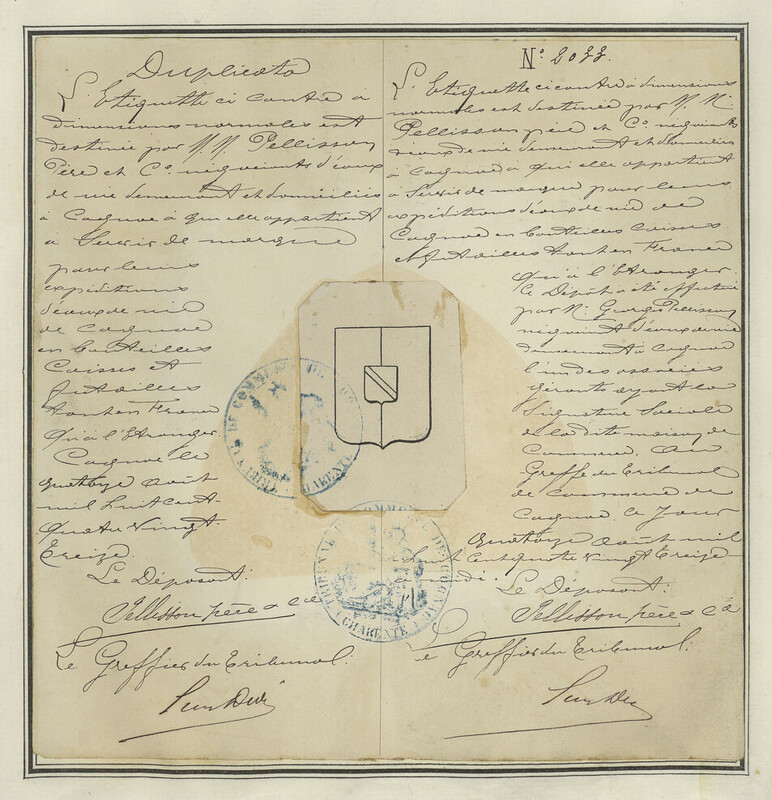 Duplicata
L'Etiquette ci contre à
dimensions normales est
destinée par M.M. Pellisson
Père et Co. négociants d'eaux
de vie demeurant et domiciliés
à Cognac à qui elle appartient
à Servir de marque
pour leurs
expéditions
d'eaux de vie
de Cognac
en bouteilles
Caisses et
futailles
tant en France
qu'à l'Etranger.
Cognac le
quatorze août
mil huit cent
quatre vingt
treize.
Le Déposant:
Pellisson père & Cie
Le Greffier du Tribunal:
No. 2033.
L'Etiquette ci contre à dimensions
normales est destinée par M.M.
Pellisson père et Co. négociants
d'eaux de vie demeurant et domiciliés
à Cognac à qui elle appartient
à Servir de marque pour leurs
expéditions d'eaux de vie de
Cognac en bouteilles caisses
et futailles tant en France
qu'à l'Etranger.
Ce Dépôt a été effectué
par M. Georges Pellisson
négociant d'eaux de vie
demeurant à Cognac
l'un des associés
gérants ayant la
Signature Sociale
de la dite maison de
Commerce. Au
Greffe du Tribunal
de commerce de
Cognac, ce jour
quatorze août mil
huit cent quatre vingt treize
midi.
Le Déposant:
Pellisson père & Cie
Le Greffier du Tribunal:
TRIBUNAL DE COMMERCE DE COGNAC
(CHARENTE)